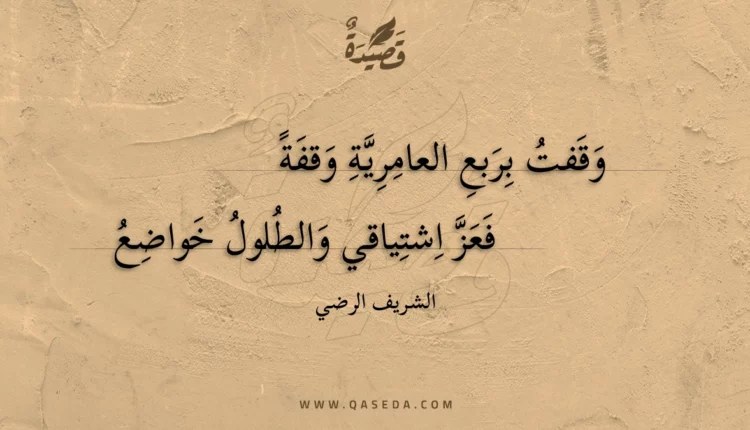 قَصِيدَةٌ
وَقَفتُ بِرَبعِ العامِرِيَّةِ وَقفَةً
فَعَزَّ اِشتِياقي وَالطُلولُ خَواضِعُ
الشريف الرضي
WWW.QASEDA.COM